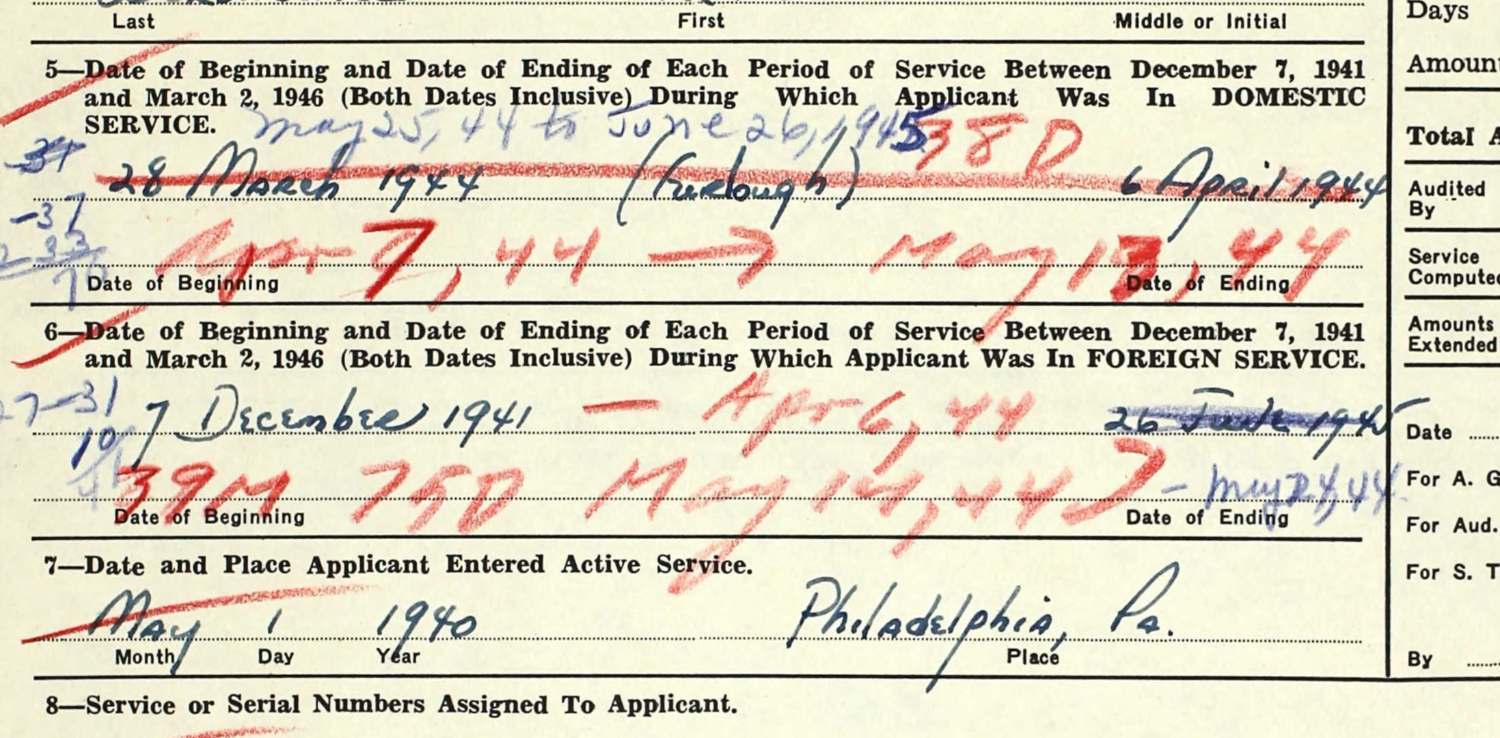 Last First Middle or Initial
5—Date of Beginning and Date of Ending of Each Period of Service Between December 7, 1941
and March 2, 1946 (Both Dates Inclusive) During Which Applicant Was In DOMESTIC
SERVICE. May 25, 44 to June 26, 1945 38 D
31
28 March 1944 (Furlough) 6 April 1944
-37
33
Apr 7, 44 → May 13, 44
Date of Beginning Date of Ending
6—Date of Beginning and Date of Ending of Each Period of Service Between December 7, 1941
and March 2, 1946 (Both Dates Inclusive) During Which Applicant Was In FOREIGN SERVICE.
7-31
7 December 1941 — Apr 6, 44 26 June 1945
10
39M 75D May 14, 44 - May 24, 44
Date of Beginning Date of Ending
7—Date and Place Applicant Entered Active Service.
May 1 1940 Philadelphia, Pa.
Month Day Year Place
8—Service or Serial Numbers Assigned To Applicant.
Days
Amount
Total A
Audited
By
Service
Compute
Amounts
Extended
Date
For A. G
For Aud.
For S. T
By